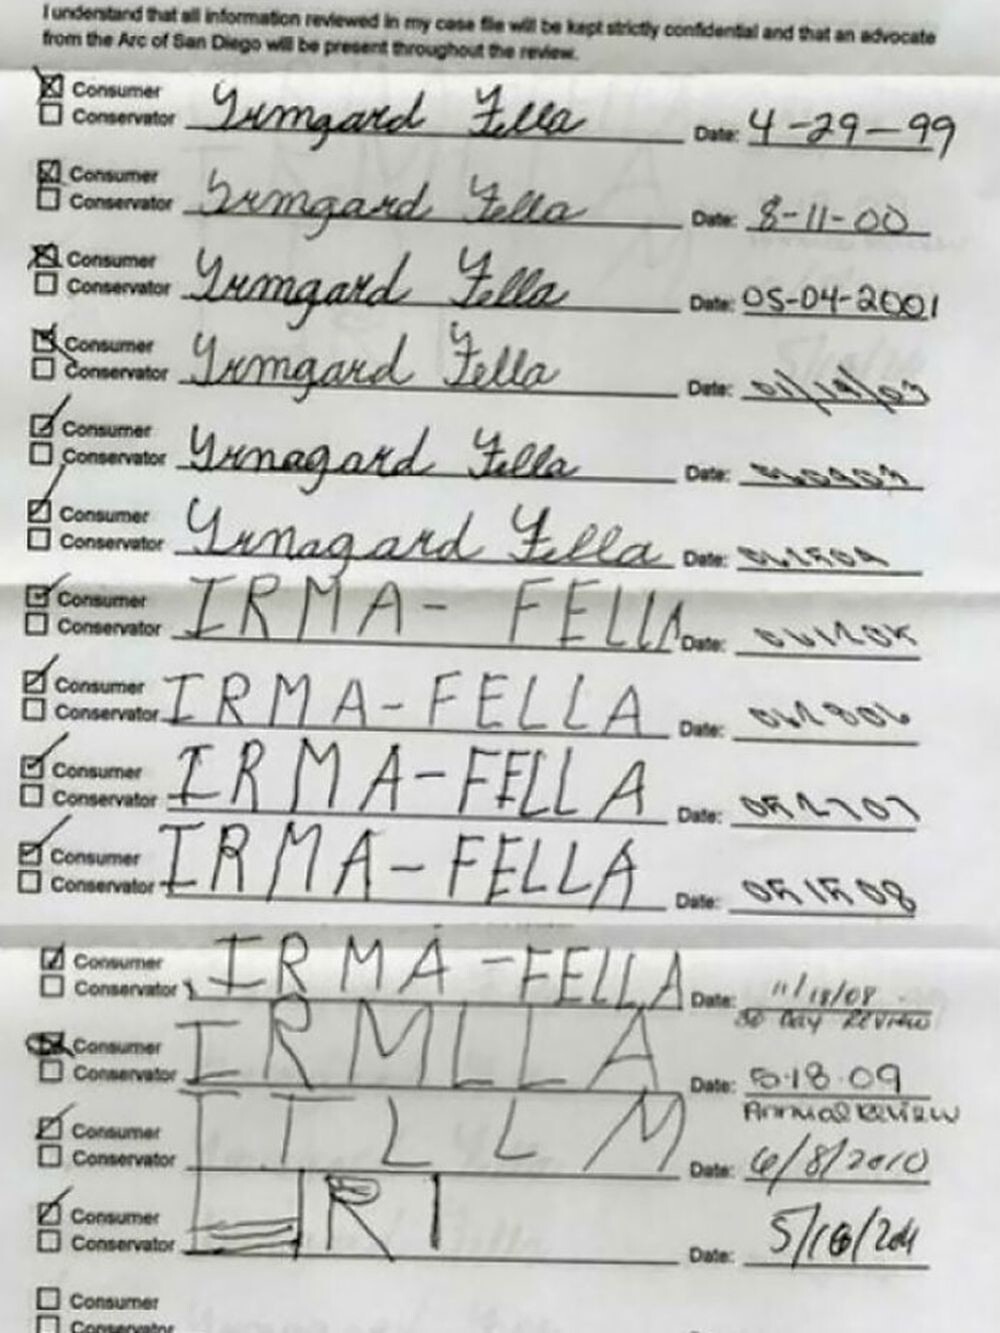 I understand that all information reviewed in my case file will be kept strictly confidential and that an advocate
from the Arc of San Diego will be present throughout the review.
Consumer
Conservator Yrmgard Fella Date: 4-29-99
Consumer
Conservator Yrmgard Fella Date: 8-11-00
Consumer
Conservator Yrmgard Fella Date: 05-04-2001
Consumer
Conservator Yrmgard Fella Date:
Consumer
Conservator Yrnagard Fella Date:
Consumer
Conservator Yrnagard Fella Date:
Consumer
Conservator IRMA- FELLA Date:
Consumer
Conservator IRMA-FELLA Date:
Consumer
Conservator IRMA-FELLA Date: 052707
Consumer
Conservator IRMA-FELLA Date: 051508
Consumer
Conservator IRMA-FELLA Date: 11/18/08
30 Day REVIEW
Consumer
Conservator IRMLLA Date: 5-18-09
Annual Review
Consumer
Conservator ITLLM Date: 6/8/2010
Consumer
Conservator RI Date:
Consumer
Conservator